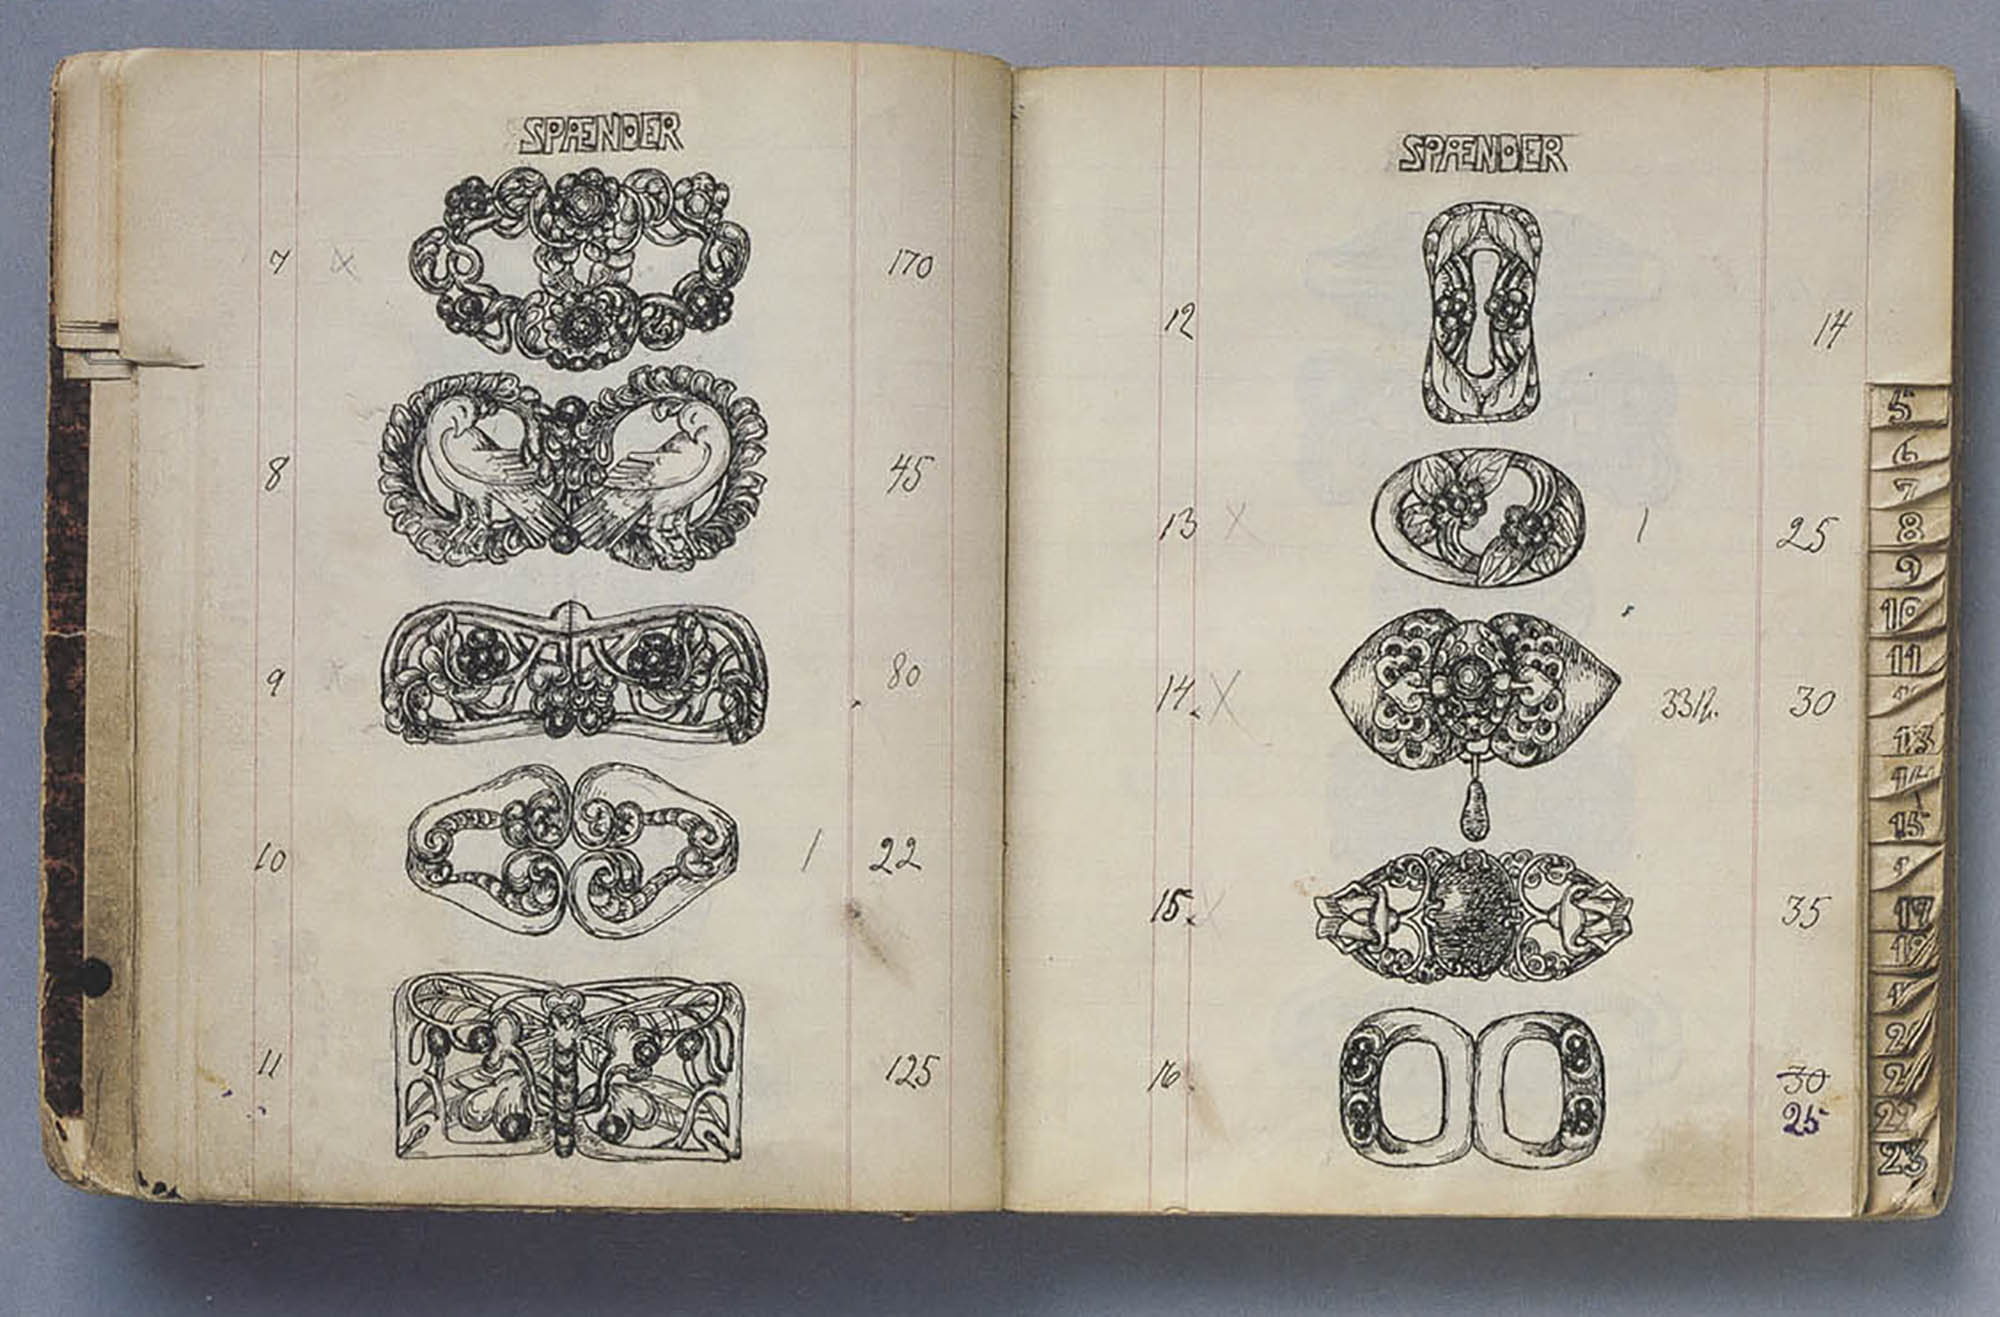 SPÆNDER
7 x 170
8 45
9 x 80
10 1 22
11 125
SPÆNDER
12 14
13 X 1 25
14 X 30
15 X 35
16 30
25
5
6
7
8
9
10
11
13
15
17
19
22
23